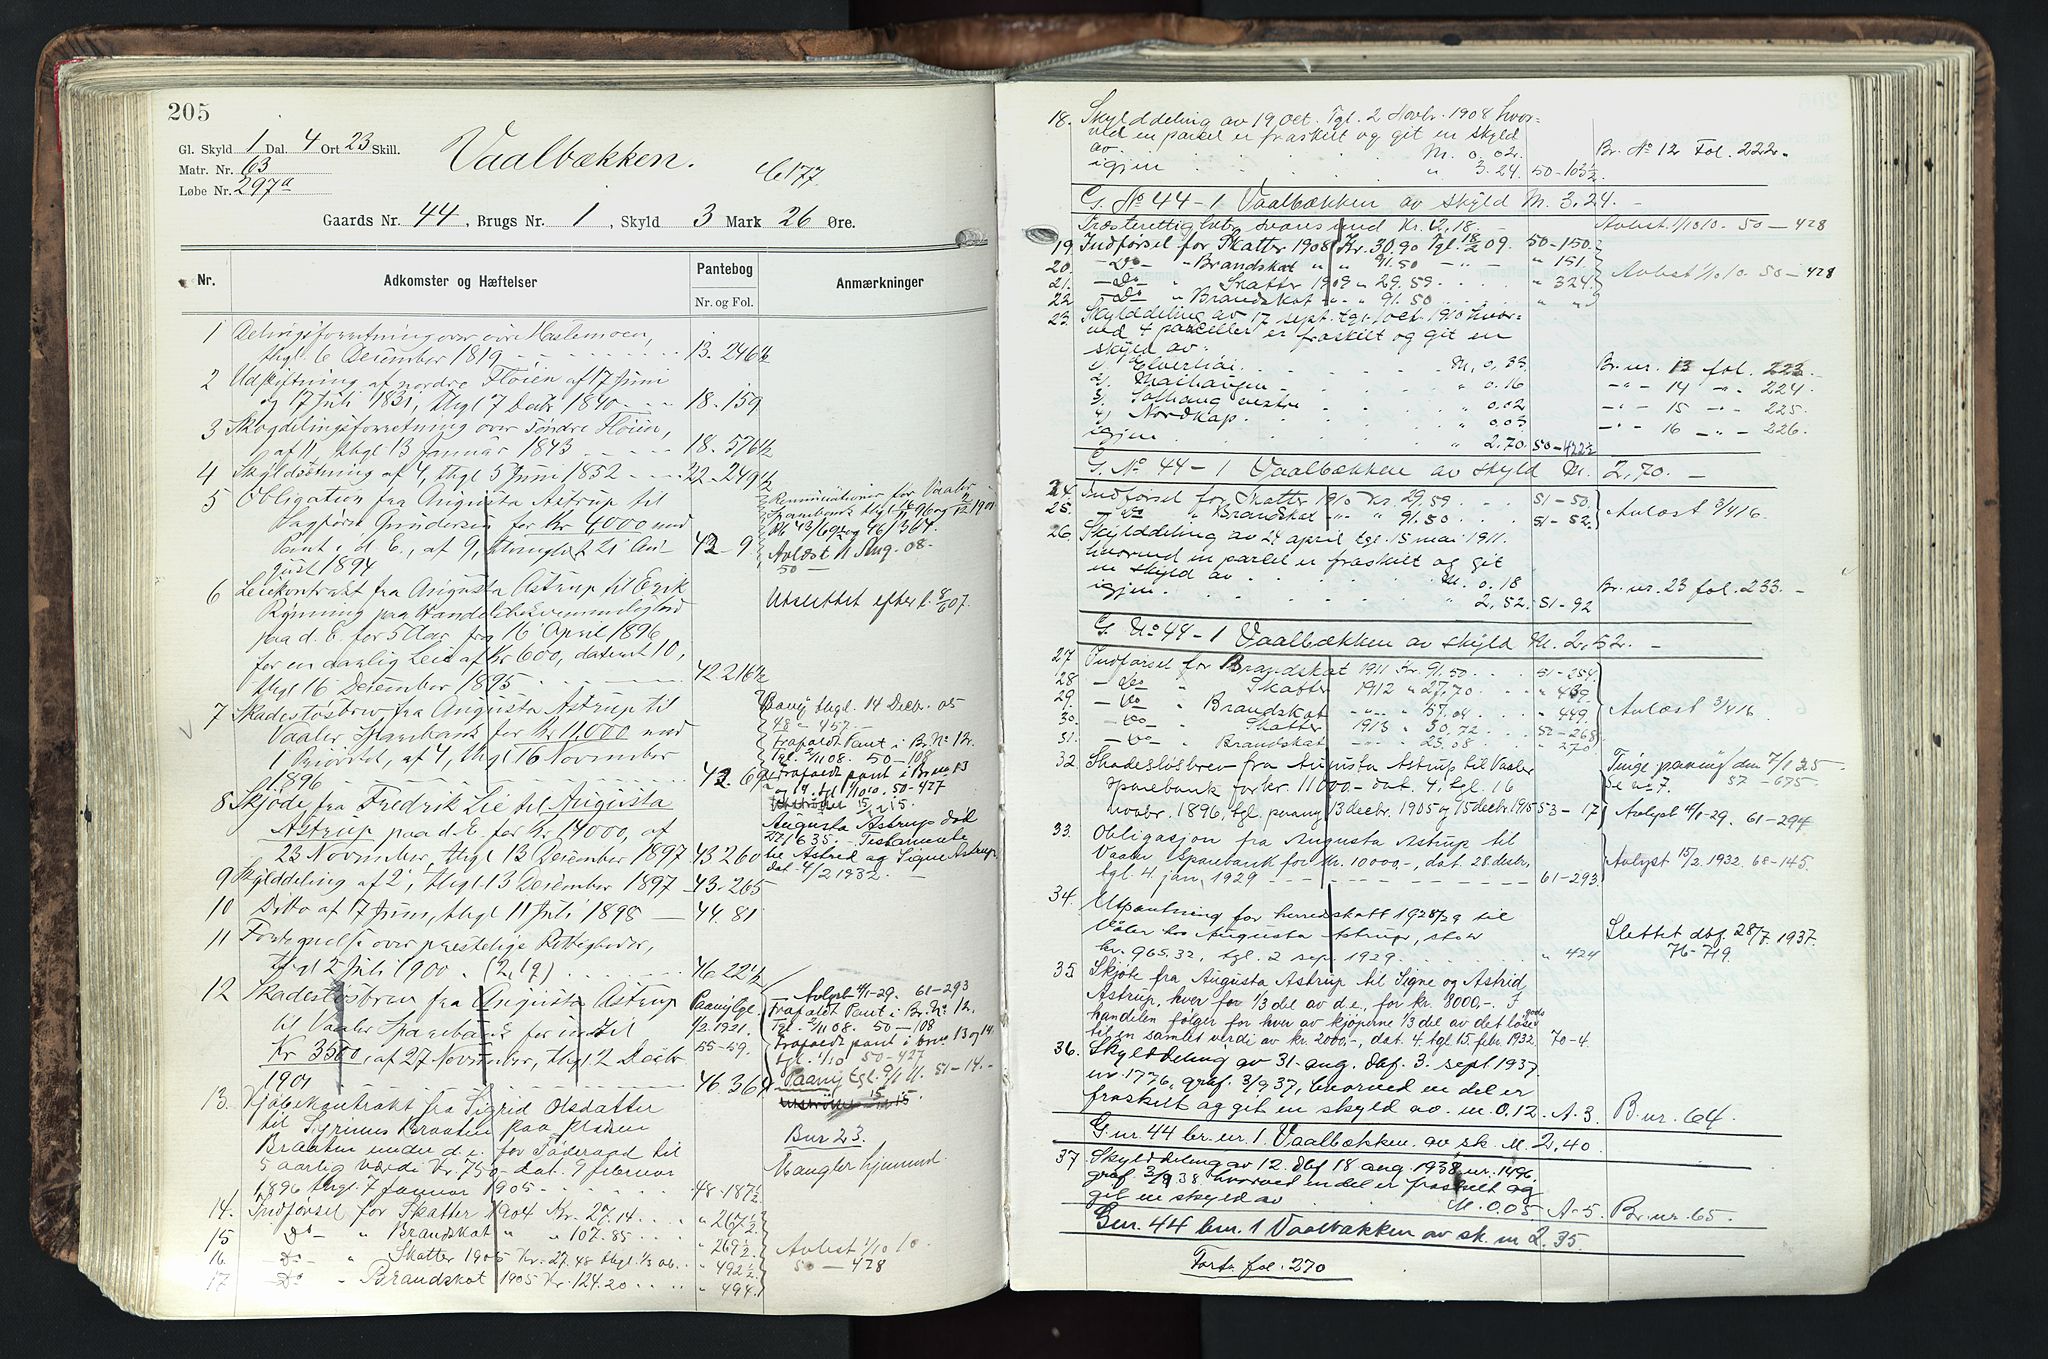 205
Gl. Skyld 1 Dal. 4 Ort 23 Skill.
Matr. Nr. 63
Løbe Nr. 297a
Vaalbækken.
Gaards Nr. 44, Brugs Nr. 1, Skyld 3 Mark 26 Øre.
Nr. Adkomster og Hæftelser Pantebog Nr. og Fol. Anmærkninger
1 Delingsforretning over
thgl. 6 December 1819 - - - 13. 246½
2 Udskiftning af nordre Floien af 17 Juni
og 17 Juli 1831, thgl 7 Decbr 1840 - - - 18-159
3 Skogdelingsforretning over söndre Floien,
af 11, thgl. 13 Januar 1843 - - - 18-576½
4 Skyldsætning af 4, thgl 5 Juni 1852 - - - 22-249½
5 Obligation fra Augusta Astrup til
for Kr 4000 med
Pant i d. E., af 9, thinglæst 21 Au- 42-9
gust 1894
Avlæst 11 Aug. 08.
50 -
6 Leiekontrakt fra Augusta Astrup til Erik
Rønning paa
paa d. E. for 5 Aar fra 16 April 1896
for en aarlig Leie af Kr 600, dateret 10,
thgl 16 December 1895 42 216½
Utslettet efter l. 8/6 07.
7 Skadesløsbrev fra Augusta Astrup til
Vaaler Sparebank for Kr 11,000 med
1 Prioritet, af 4, thgl 16 November
1896 42. 69
Paany thgl. 14 Decbr. 05
48 - 457.
Frafaldt Pant i Br. No 12.
Tgl. 2/11 08. 50-108
Frafaldt pant i Br no 13
og 14. tgl 1/10 10. 50-427
8 Skjøde fra Fredrik Lie til Augusta
Astrup paa d. E. for Kr 14000, af
23 November, thgl 13 December 1897 43 260
Augusta Astrup död
27/6 35. - Testamente
til Astrid og Signe Astrup,
dat 4/2 1932. -
9 Skylddeling af 2, thgl. 13 December 1897 43-265
10 Ditto af 17 Juni, thgl 11 Juli 1898 - 44. 81
11 Fortegnelse over præstelige Rettigheder,
thgl 2 Juli 1900. (2,19) . . . 46 22½
12 Skadesløsbrev fra Augusta Astrup
til Vaaler Sparebank for indtil
Kr 3500, af 27 November, thgl 2 Decbr
1901 46. 364
Paany tgl.
1/2. 1921.
55-59.
Avlyst 4/1-29. 61-293
Frafaldt Pant i Br. No 12,
tgl. 2/11 08. 50-108
Frafaldt pant i brno 13 og 14.
tgl. 1/10 50-427
Paany tgl. 9/1 11. 51-14.-
Bnr 23.
13. Kjøbekontrakt fra Sigrid Olsdatter
til Braaten paa pladsen
Braaten under d.e. for Föderaad til
5 aarlig værdi Kr. 750, dat. 9 februar
1896 thgl. 7 Januar 1905. 48-187½
Mangler hjemmel.
14. Indførsel for Skatter 1904 Kr. 27.14 . . " 267½
15 Do " Brandskat " " 107.85 . . " 269½
16 - Do - " Skatter 1905 Kr. 27.48 thgl. 1/3 06. . " 492½
17 - Do " Brandskat 1905 Kr. 124.20 . . " 494.
Avlæst 1/10 10.
50 - 428
18. Skylddeling av 19 Oct. Tgl. 2 Novbr. 1908 hvor-
ved en parcel er fraskilt og git en skyld
av . . . M. 0.02. Br. No 12 Fol. 222.
igjen . . . " 3.24. 50-103½
G. No 44-1 Vaalbækken av skyld M. 3.24. -
Kr. 12.18. - Avlæst. 1/10 10. 50-428
19 Indførsel for Skatter 1908 Kr. 30.90 Tgl. 18/2 09. 50-150.
20. - Do - " Brandskat " " 91.50 - " - " 151
21. - Do - " Skatter 1909 " 29.59 . . . " 324
22 - Do " Brandskat " " 91.50 . . . " "
Avlæst 1/10 10. 50-428
23. Skylddeling av 17 sept. tgl. 1 oct. 1910 hvor-
ved 4 parceller er fraskilt og git en
skyld av:
1. Elverhöi . . . M. 0.33 Br. nr. 13 fol. 223.
2. Maihaugen - " 0.16 -"- " 14 -"- 224.
3. Solhaug vestre " 0.02 -"- " 15 -"- 225.
4. Nordkap. " 0.03 -"- " 16 -"- 226.
igjen . . . " 2.70. 50-422½
G. No 44-1 Vaalbækken av skyld M. 2,70. -
24. Indførsel for Skatter 1910 Kr. 29.59 . . 51-50.
25. - Do " Brandskat " " 91.50 . . 51-52.
Avlæst 3/4 16.
26. Skylddeling av 24 april tgl. 15 mai 1911.
hvorved en parcel er fraskilt og git
en skyld av . . . M. 0.18 Br. nr. 23 fol. 233. -
igjen . . . " 2.52. 51-92
G. No 44-1 Vaalbækken av skyld M. 2,52. -
27 Indførsel for Brandskat 1911 Kr. 91.50 . . 51-254.
28 - Do " Skatter 1912 " 27.70 . . " 439.
29. - Do " Brandskat " " 57.04 . . " 449.
30. - Do - " Skatter 1913 " 30.72 . . 52-268
31. - Do - " Brandskat " " 23.08 . . " 270
Avlæst 3/4 16
32. Skadesløsbrev fra Augusta Astrup til Vaaler
Sparebank for kr. 11000.- dat. 4, tgl. 16
novbr. 1896, tgl. paany 13 decbr. 1905 og 15 decbr. 1915 53-17
Tingl. paany den 7/1 25
Se nr 7. 57-675.
Avlyst 4/1-29. 61-294
33. Obligasjon fra Augusta Astrup til
Vaaler Sparebank for kr. 10000,-, dat. 28 decbr.
tgl. 4 jan. 1929 - - - 61-293.
Avlyst 15/2. 1932. 68-145.
34. Utpantning for herredsskatt 1928/29 til
Våler hos Augusta Astrup, stor
kr. 965.32, tgl. 2 sep. 1929. " 424
Slettet dbf. 28/7. 1937.
76-719.
35. Skjöte fra Augusta Astrup til Signe og Astrid
Astrup, hver for 1/3 del av d.e., for kr. 8000,-. I
handelen fölger for hver av kjöperne 1/3 del av det löse gods
til en samlet verdi av kr. 2000,-, dat. 4 tgl. 15. febr. 1932. 70-4.
36. Skylddeling av 31. aug. dbf. 3. sept. 1937.
nr. 1776, graf. 3/9 37, hvorved en del er
fraskilt og git en skyld av. m. 0.12. A-3. B.nr. 64.
G.nr 44 br.nr. 1. Vaalbækken. av sk. M. 2,40.
37. Skylddeling av 12. dbf 18 aug. 1938 nr. 1496,
graf. 3/9 38 hvorved en del er fraskilt og
git en skyld av M. 0.05. A-5. Br.nr. 65.
Gnr. 44 bnr. 1 Vaalbækken av sk. m 2.35.
Forts. fol. 270